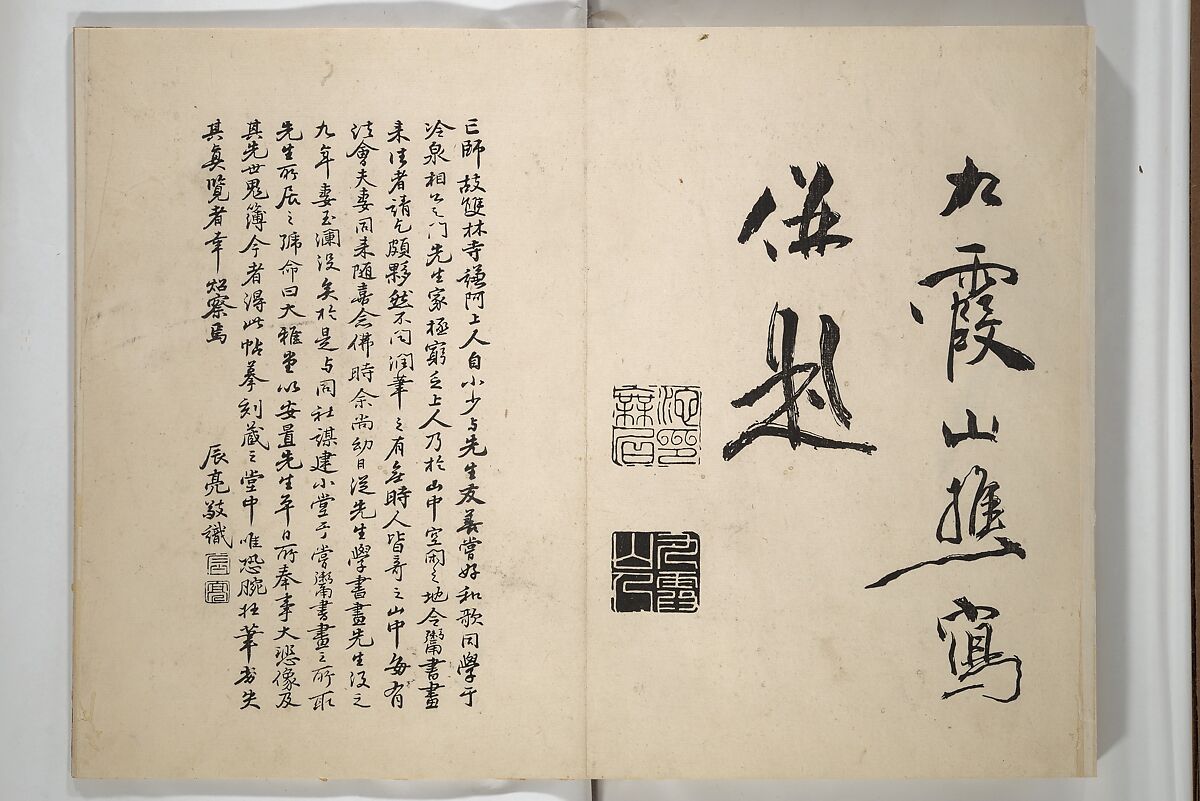 九霞山樵寫
併題
九霞山人
亡師故雙林寺謙阿上人自小少与先生友善嘗好和歌同學于
冷泉相公之門先生家極窮乏上人乃於山中空閑之地令鬻書畫
来往者請乞頗夥然不問潤筆之有無時人皆奇之山中每有
法會夫妻同来随喜念佛時余尚幼日従先生學書畫先生没之
九年妻玉瀾没矣於是与同社謀建小堂于嘗鬻書畫之所取
先生所居之號命曰大雅堂以安置先生平日所奉事大悲像及
其先世鬼簿今者得此帖摹刻蔵之堂中唯恐腕拙筆劣失
其真覧者幸炤察焉 辰亮敬識
辰亮